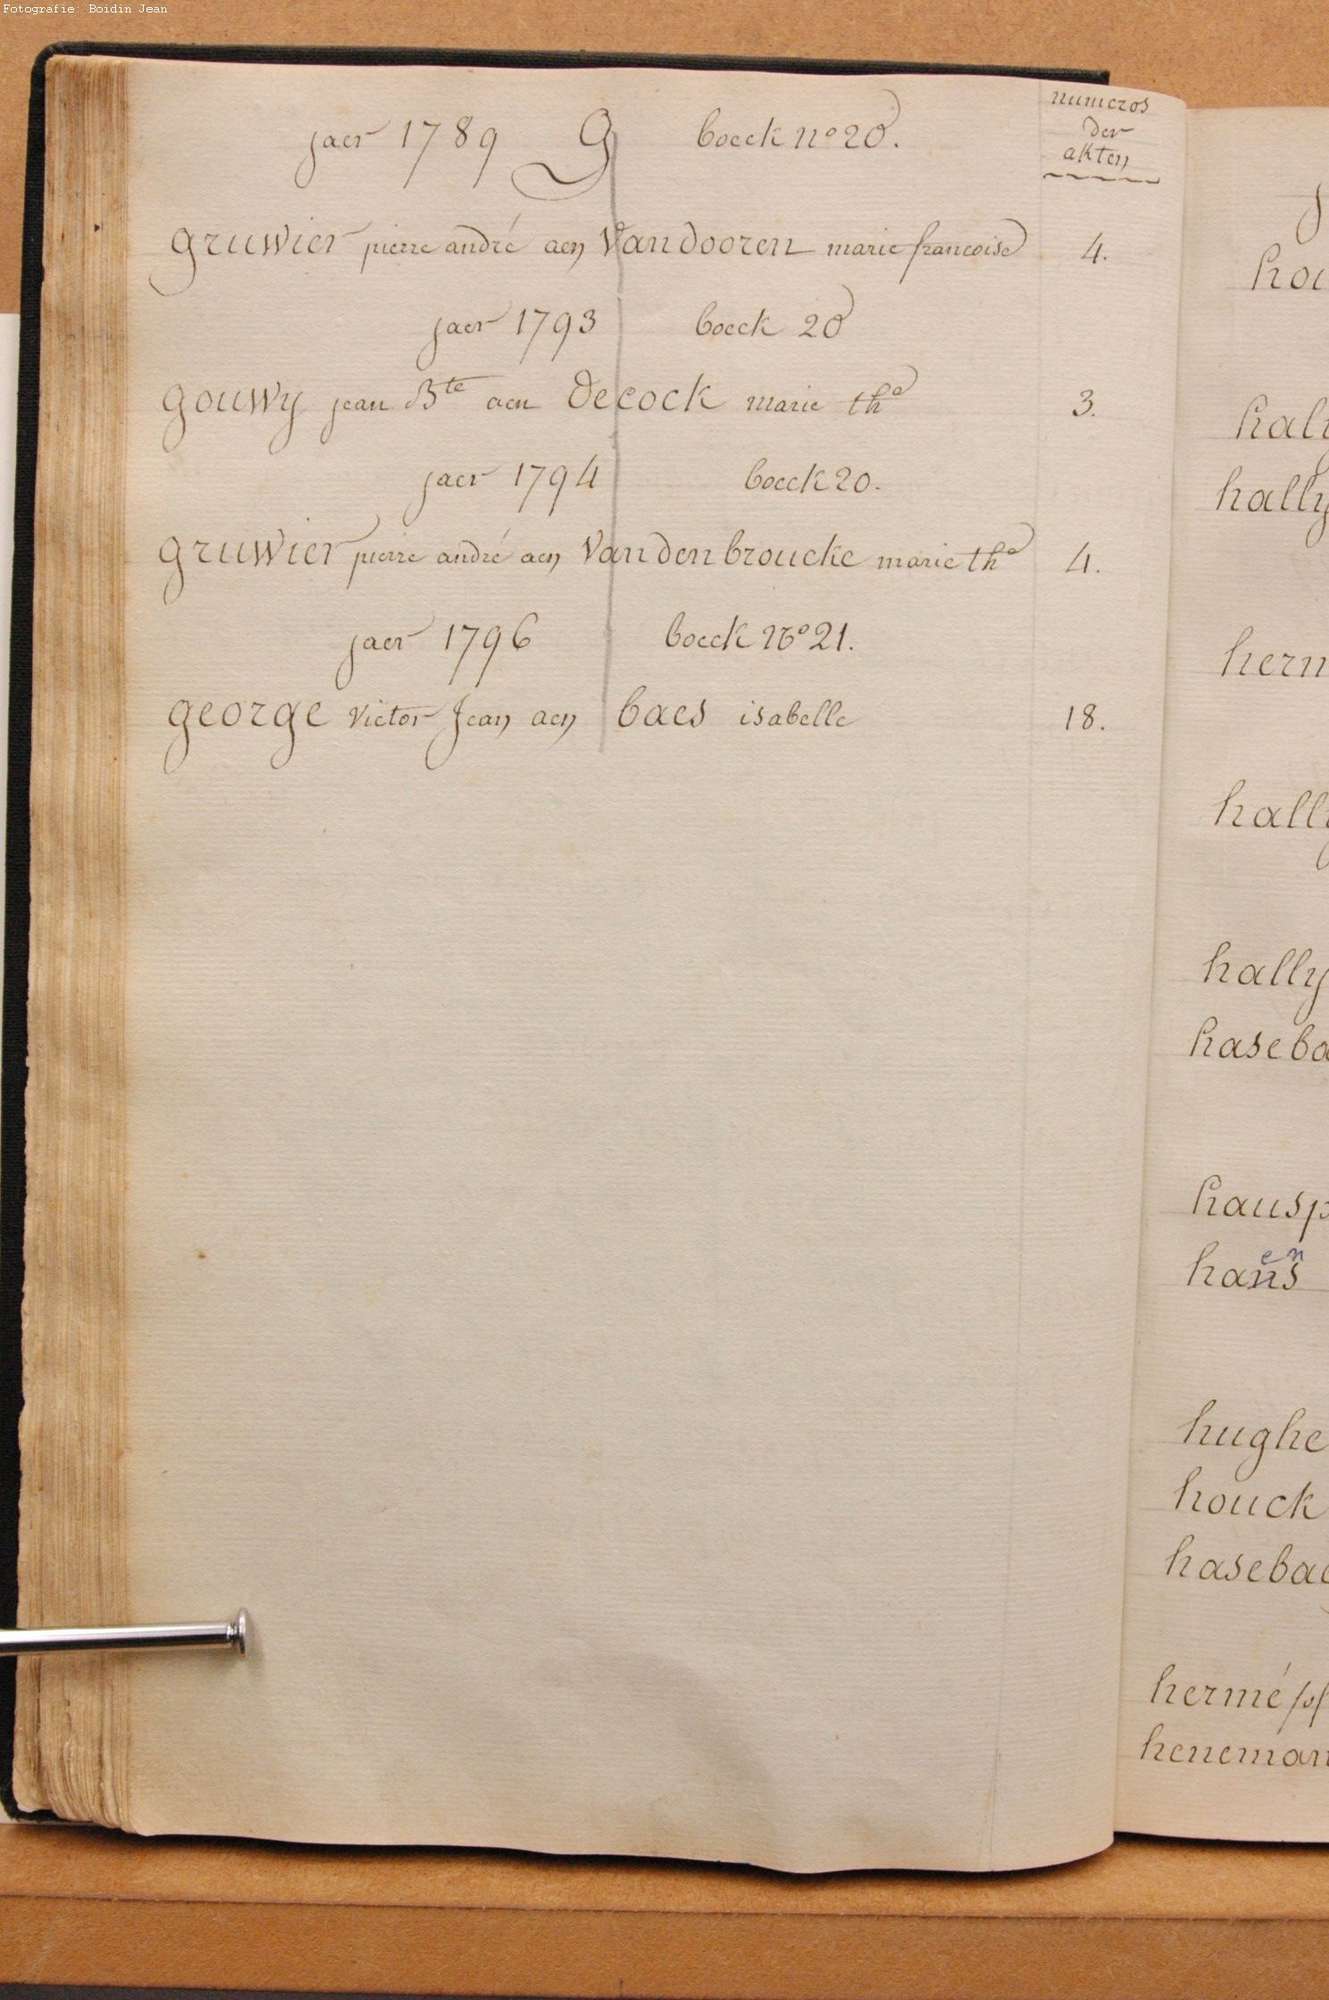 Fotografie: Boidin Jean
numeros
der
akten
jaer 1789 G boeck n° 20.
gruwier pierre andré aen Vandooren marie francoise 4.
jaer 1793 boeck 20
gouwy jean Bte aen Decock marie the 3.
jaer 1794 boeck 20.
gruwier pierre andré aen Vandenbroucke marie the 4.
jaer 1796 boeck N° 21.
george victor Jean aen baes isabelle 18.
hou
hally
hally
herm
hally
hally
haseba
hausp
en
hans
hughe
houck
hasebae
hermé
heneman